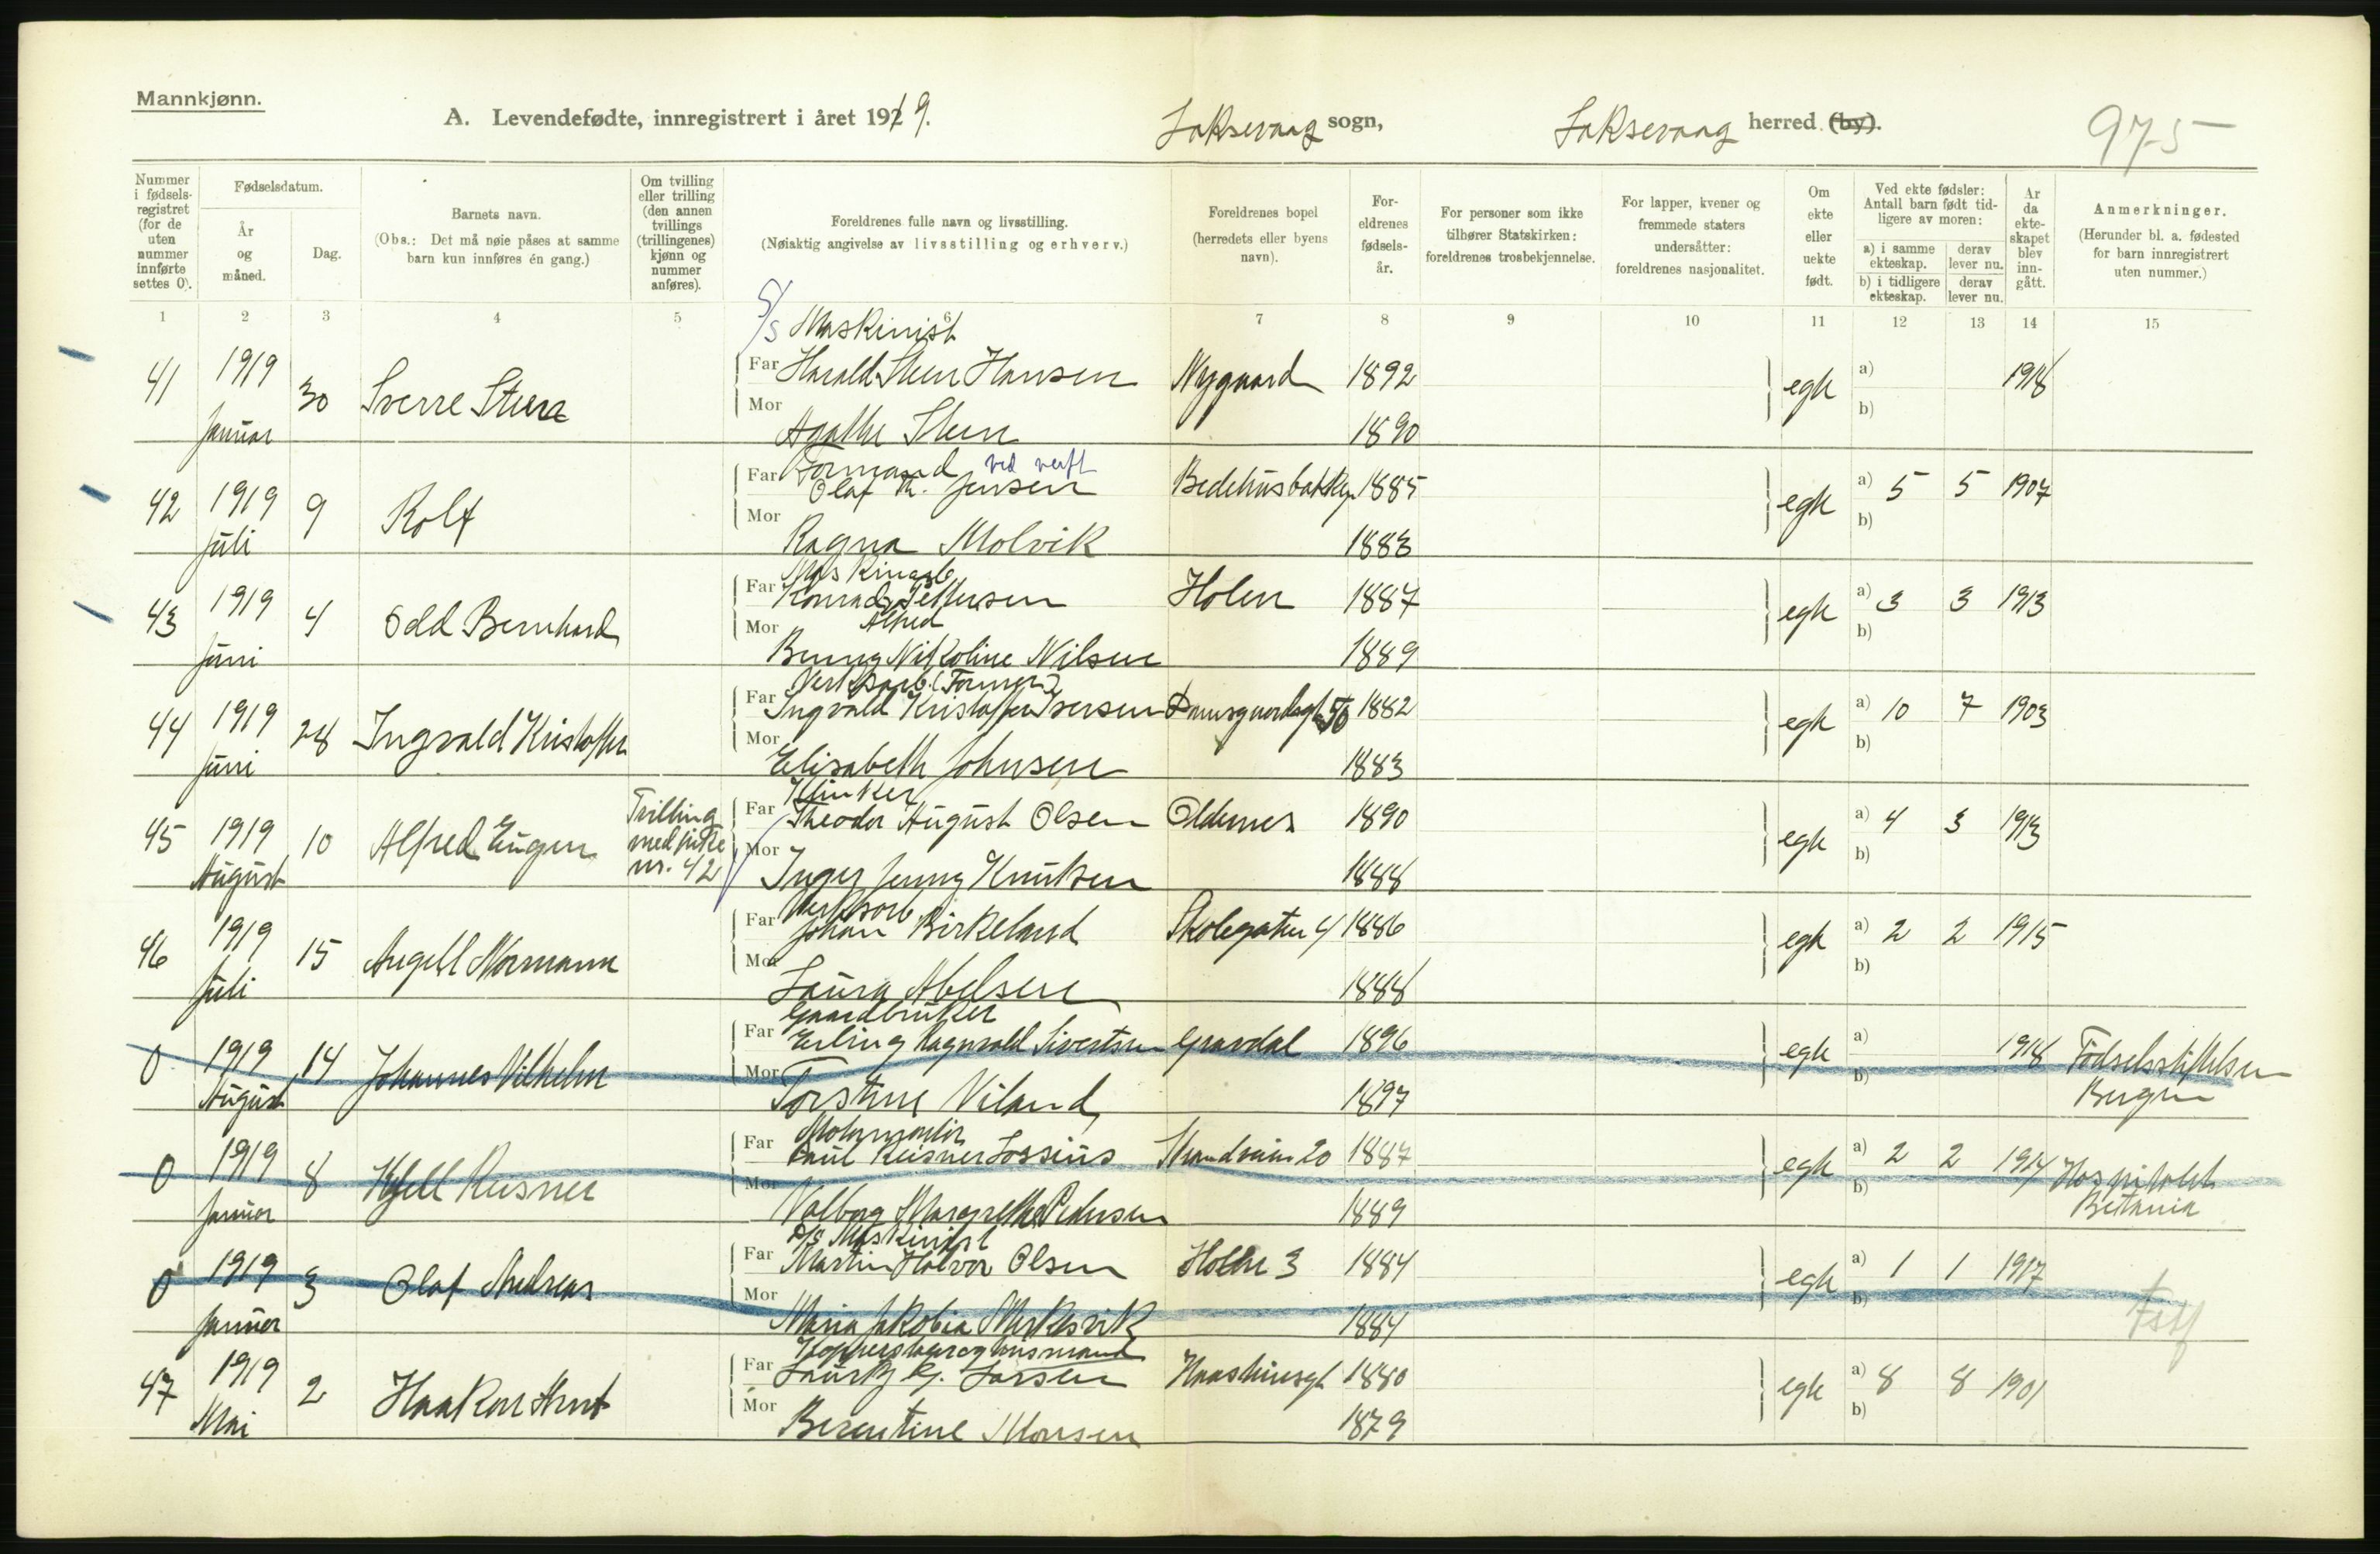 Mannkjønn.
A. Levendefødte, innregistrert i året 1919.
Laksevaag sogn,
Laksevaag herred (by).
975
Nummer i fødselsregistret (for de uten nummer innførte settes 0).
Fødselsdatum.
År og måned.
Dag.
Barnets navn.
(Obs.: Det må nøie påses at samme barn kun innføres én gang.)
Om tvilling eller trilling (den annen tvillings (trillingenes) kjønn og nummer anføres).
Foreldrenes fulle navn og livsstilling.
(Nøiaktig angivelse av livsstilling og erhverv.)
Foreldrenes bopel (herredets eller byens navn).
Foreldrenes fødselsår.
For personer som ikke tilhører Statskirken: foreldrenes trosbekjennelse.
For lapper, kvener og fremmede staters undersåtter: foreldrenes nasjonalitet.
Om ekte eller uekte født.
Ved ekte fødsler: Antall barn født tidligere av moren:
a) i samme ekteskap. derav lever nu.
b) i tidligere ekteskap. derav lever nu.
År da ekteskapet blev inngått.
Anmerkninger.
(Herunder bl. a. fødested for barn innregistrert uten nummer.)
1 2 3 4 5 6 7 8 9 10 11 12 13 14 15
S/S Maskinist
41 1919 Januar 30 Sverre Steen Far Harald Steen Hansen Nygaard 1892 egte a) b) 1918
Mor Agathe Steen 1890
Formand ved verft
42 1919 Juli 9 Rolf Far Olaf M. Jensen Bedehusbakken 1885 egte a) 5 5 1907 b)
Mor Ragna Molvik 1883
Maskinarb.
43 1919 Juni 4 Odd Bernhard Far Konrad Alfred Pettersen Holen 1887 egte a) 3 3 1913 b)
Mor Benny Nikoline Nilsen 1889
Verkstarb. (Former)
44 1919 Juni 28 Ingvald Kristoffer Far Ingvald Kristoffer Iversen Damsgaardsgt 56 1882 egte a) 10 7 1903 b)
Mor Elisabeth Johnsen 1883
Klinker
45 1919 August 10 Alfred Eugen Tvilling med pike nr. 42 Far Theodor August Olsen Oldernes 1890 egte a) 4 3 1913 b)
Mor Inger Jenny Knutsen 1888
Verkstarb
46 1919 Juli 15 Angell Normann Far Johan Birkeland Skolegaten 4 1886 egte a) 2 2 1915 b)
Mor Laura Abelsen 1888
Gaardbruker
0 1919 August 14 Johannes Vilhelm Far Erling Ragnvald Sivertsen Gravdal 1896 egte a) b) 1918 Fødselsstiftelsen Bergen
Mor Torstine Viland 1897
0 1919 Januar 8 Kjell Reisner Far Paul Reisner Lossius Strandveien 20 1887 egte a) 2 2 1914 b) Hospitalet Betania
Mor Valborg Margrethe Pedersen 1889
D/S Maskinist
0 1919 Januar 3 Olaf Andreas Far Martin Halvor Olsen Holen 3 1884 egte a) 1 1 1917 b) Fstf
Mor Maria Jakobia Myklsvik 1884
47 1919 Mai 2 Haakon Arnt Far Lauritz G. Larsen 1880 egte a) 8 8 1901 b)
Mor Berentine Monsen 1879